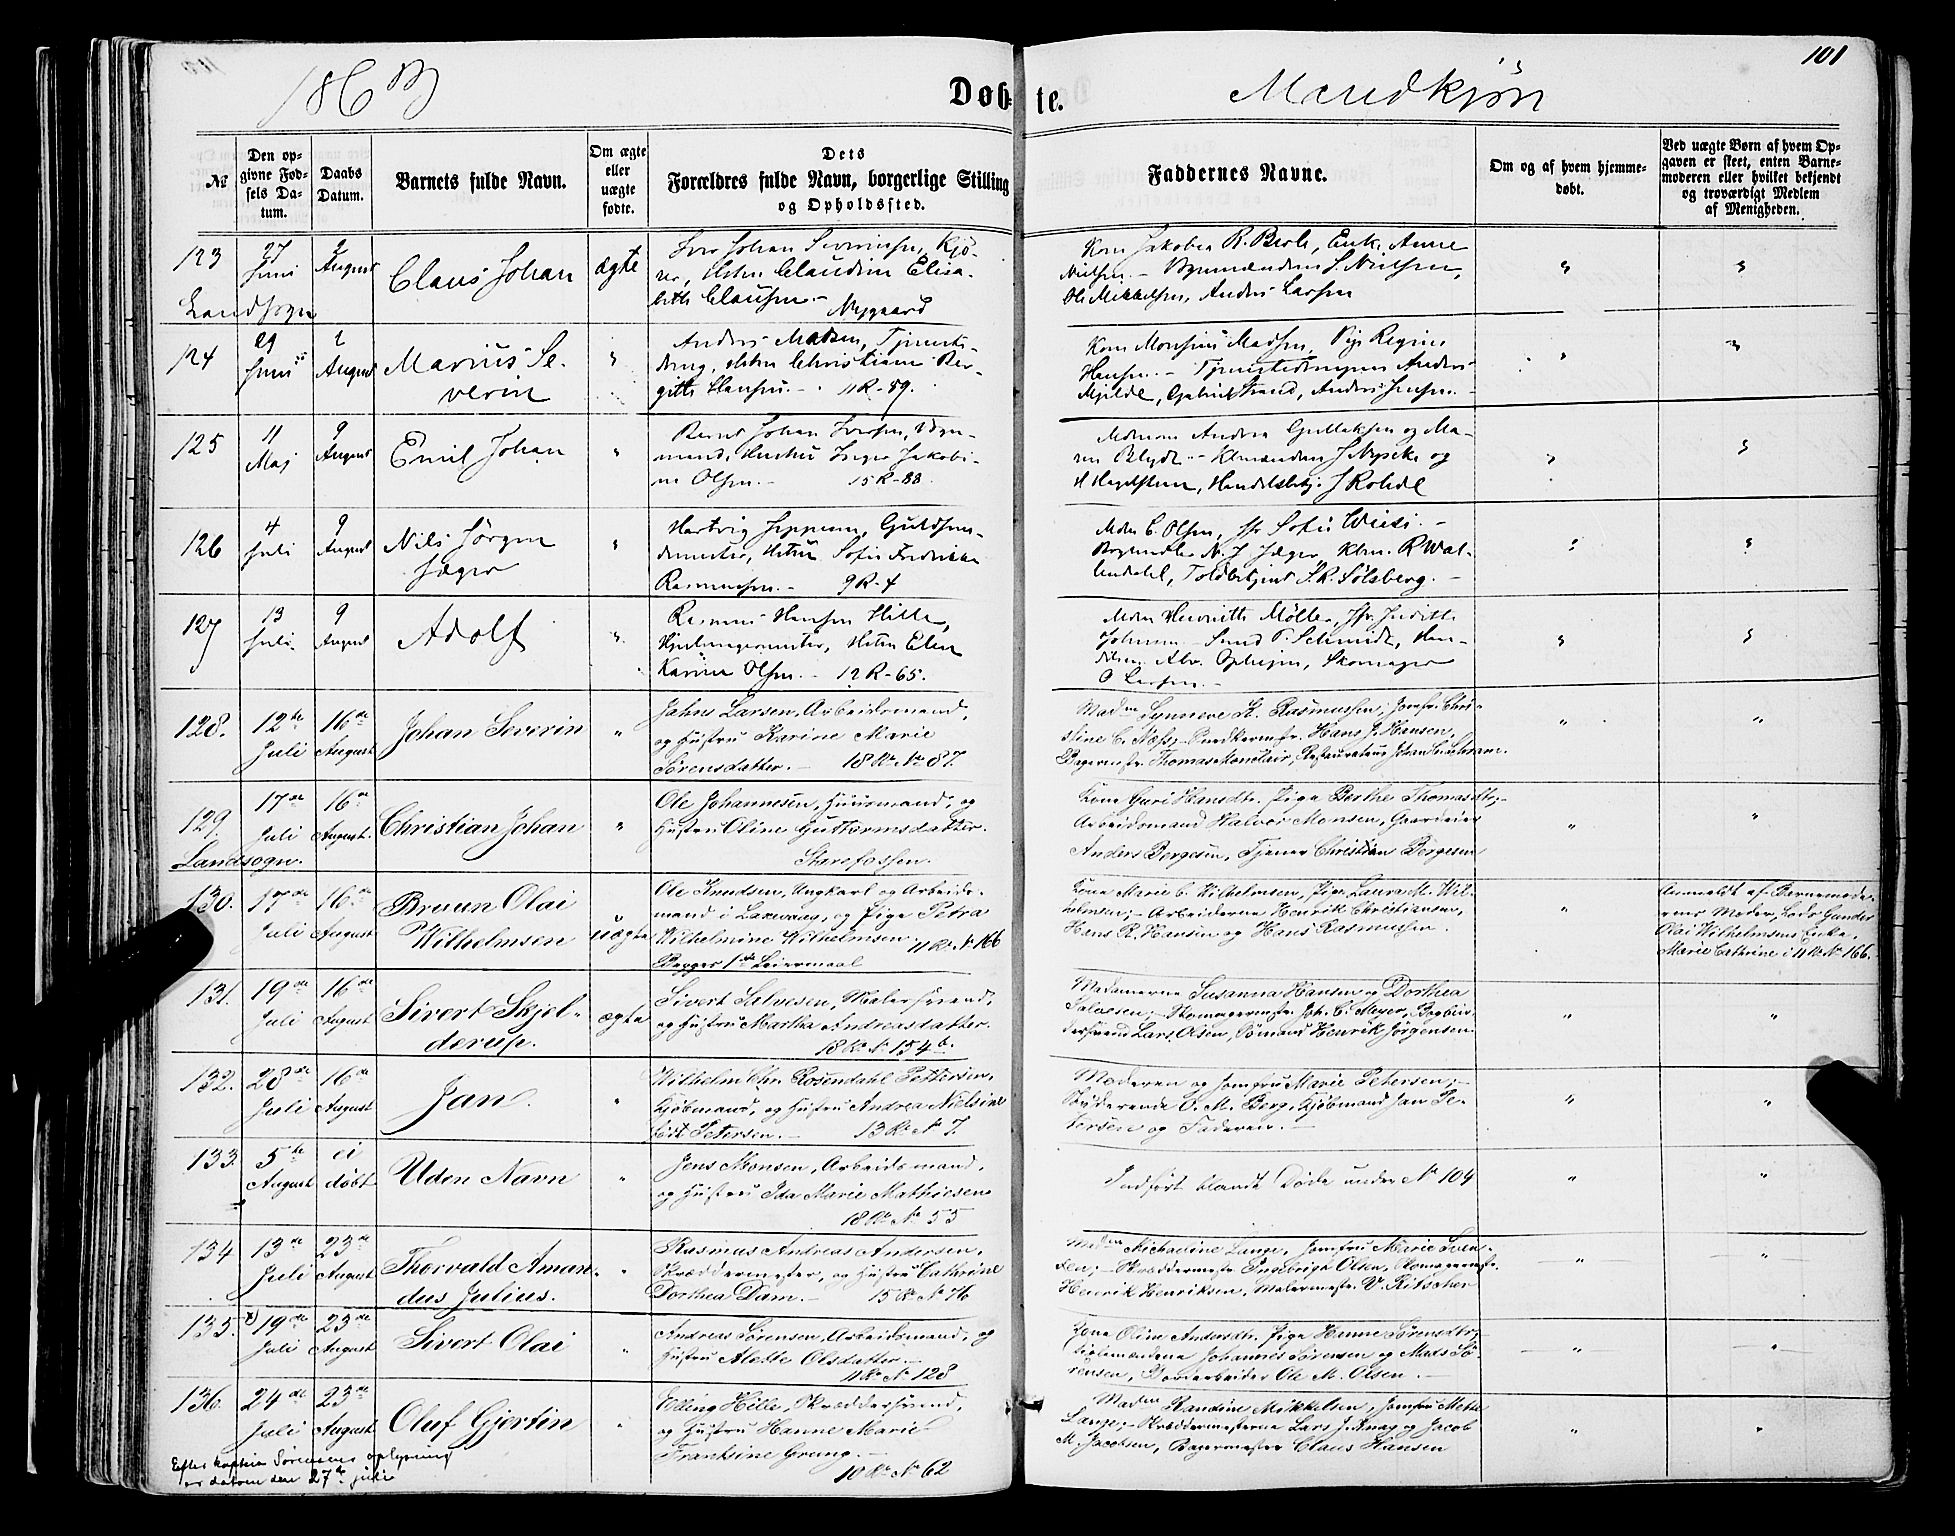 1863
Døbte.
Mandkjøn
101
№
Den opgivne Fødsels Datum.
Daabs Datum.
Barnets fulde Navn.
Om ægte eller uægte fødte.
Dets Forældres fulde Navn, borgerlige Stilling og Opholdssted.
Faddernes Navne.
Om og af hvem hjemmedøbt.
Ved uægte Børn af hvem Opgaven er skeet, enten Barnemoderen eller hvilket bekjendt og troværdigt Medlem af Menigheden.
123
27 Juni
2 August
Claus Johan
ægte
Johan
Claudine Elisa-
beth Clausen.-
Nygaard
Landsogn
Kone Jakobea R. Berle, Enke Anne
Nielsen.- S. Nielsen,
Ole Mikkelsen, Anders Larsen
"
"
124
29 Juni
2 August
Marius Se-
verin
"
Anders Madsen,
Christiane Ber-
gitte Hansen.- 11 R - 89.
Kone Madsen, Pige Regine
Hansen.- Anders
Anders Jensen.-
"
"
125
11 Maj
9 August
Emil Johan
"
Bernt Johan Iversen,
mand, Hustru Inger Jakobi-
ne Olsen.- 15 R - 88.
Andrea Gullaksen og Ma-
ren J Nyseke og
J Rohde
"
"
126
4 Juli
9 August
Nils Jørgen
Jæger
"
Hartvig Jeppesen, Guldsme-
demester, Sofie Fredrikke
Rasmussen.- 9 R - 4
C. Olsen, Jfr Sofie Wiese.-
N. J. Jæger, R Wal-
lendahl, Toldbetjent S. R. Sølsberg.-
"
"
127
13 Juli
9 August
Adolf
"
Rasmus Hansen Hille,
Hjulmagermester, Elen
Karine Olsen.- 12 R - 65.
Henriette Møller, Jfr. Judithe
T. Schmidt,
Skomager
O Larsen.-
"
"
128.
12te Juli
16de August
Johan Severin
"
Jahns Larsen, Arbeidsmand,
og Hustru Karine Marie
Sørensdatter.- 18 Re. No 87.
Madm Synneve K. Rasmussen; Jomfr. Chri-
stine C. Næss;- Hans J. Hansen,
Bagermstr. Thomas Monclair, Restaurateur Johan
"
"
129.
17de Juli
16de August.
Christian Johan
"
Ole Johannesen, Huusmand, og
Hustru Oline Guttormsdatter.
Starefossen.
Landsogn.
Kone Guri Hansdtr. Pige Berthe Thomasdtr;-
Arbeidsmand Halvor Monsen, Gaardeier
Anders Børgesen, Tjener Christian Børgesen
"
"
130.
17de Juli
16de August
Bruun Olai
Wilhelmsen
uægte
Ole Knudsen, Ungkarl og Arbeids-
mand i Laxevaag, og Pige Petra
Wilhelmine Wilhelmsen. 11 Re. No 166
Begges 1ste Leiermaal
Kone Marie C. Wilhelmsen, Pige Laura M. Wil-
helmsen;- Arbeiderne Henrik Christiansen,
Hans R. Hansen og Hans Rasmussen.
"
Anmeldt af Barnemode-
rens Moder, Gunder
Olai Wilhelmsens Enke,
Marie Cathrine i 11 Re No 166.
131.
19de Juli
16de August
Sivert Skjel-
derup.
ægte
Sivert Salvesen, Malersvend,
og Hustru Martha Andreasdatter.
18 Re No 154 b.
Madamerne Susanna Hansen og Dorthea
Salvesen;- Skomagermstr. Joh. C. Meyer, Bogbin-
dersvend Lars Olsen, Sømand Henrik Jørgensen.
"
"
132.
28de Juli
16de August
Jan.
"
Wilhelm Chr. Rosendahl Pettersen,
Kjøbmand, og Hustru Andrea Nielsine
født Petersen.- 13 Re No 7.
Moderen og Jomfru Marie Petersen;-
Studerende O. M. Berg, Kjøbmand Jan Pe-
tersen og Faderen.-
"
"
133.
5te August
ei døbt
Uden Navn
"
Jens Monsen, Arbeidsmand,
og Hustru Ida Marie Mathiesen
18 Re No 55
Indført blandt Døde under No 104
"
"
134
13de Juli
23de August
Thorvald Aman-
dus Julius.
"
Rasmus Andreas Andersen,
Skræddermester, og Hustru Cathrine
Dorthea Dam.- 15 Re No 76
Madm Michaeline Lange, Jomfru Marie Sven-
sen;- Skræddermester Ingebrigt Olsen, Skomagermstr.
Henrik Henriksen, Malermestr. V. Ritscher
"
"
135. x)
19de Juli
23de August
Sivert Olai
"
Andreas Sørensen, Arbeidsmand, og
Hustru Alette Olsdatter.-
11 Re No 128
Kone Oline Andersdtr. Pige Hanne Sørensdtr;-
Johannes Sørensen og Mads Sø-
rensen, Ole M. Olsen.-
"
"
136.
24de Juli
23de August
Oluf Gjertin
"
Elling Hille, Skræddersvend,
og Hustru Hanne Marie
Frantsine Grung.-
10 Re No 62
Madmm Randine Mikkelsen, Jomfru Mette
Lange;- Skræddermesterne Lars J. Krag og Jacob
M. Jacobsen, Bagermester Claus Hansen
"
"
Efter kaptein Sørensens oplysning
er datoen den 27de juli